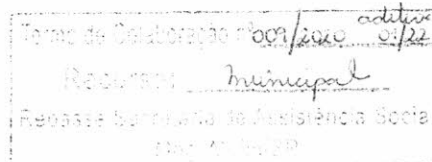 aditivo
Termo de Colaboração nº 009/2020 01/22
Recurso: Municipal
Repasse Secretaria de Assistência Social